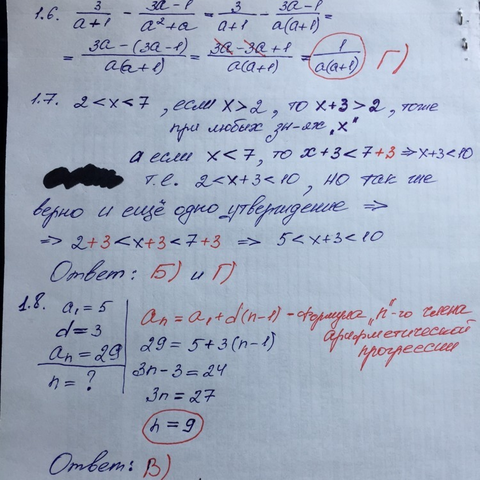 1.6. 3/(a+1) - (3a-1)/(a²+a) = 3/(a+1) - (3a-1)/(a(a+1)) =
= (3a-(3a-1))/(a(a+1)) = (3a-3a+1)/(a(a+1)) = 1/(a(a+1)) Г)
1.7. 2<x<7, если x>2, то x+3>2, тоже
при любых зн-ях „x"
а если x<7, то x+3<7+3 ⇒ x+3<10
т.е. 2<x+3<10, но так же
верно и ещё одно утверждение ⇒
⇒ 2+3<x+3<7+3 ⇒ 5<x+3<10
Ответ: Б) и Г)
1.8. a₁=5
d=3
aₙ=29
n=?
aₙ=a₁+d(n-1) - формула „n"-го члена
арифметической
прогрессии
29=5+3(n-1)
3n-3=24
3n=27
n=9
Ответ: В)